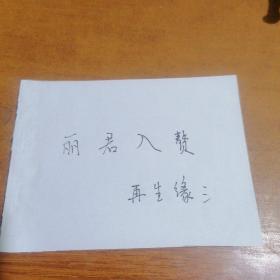 丽君入赘
再生缘三